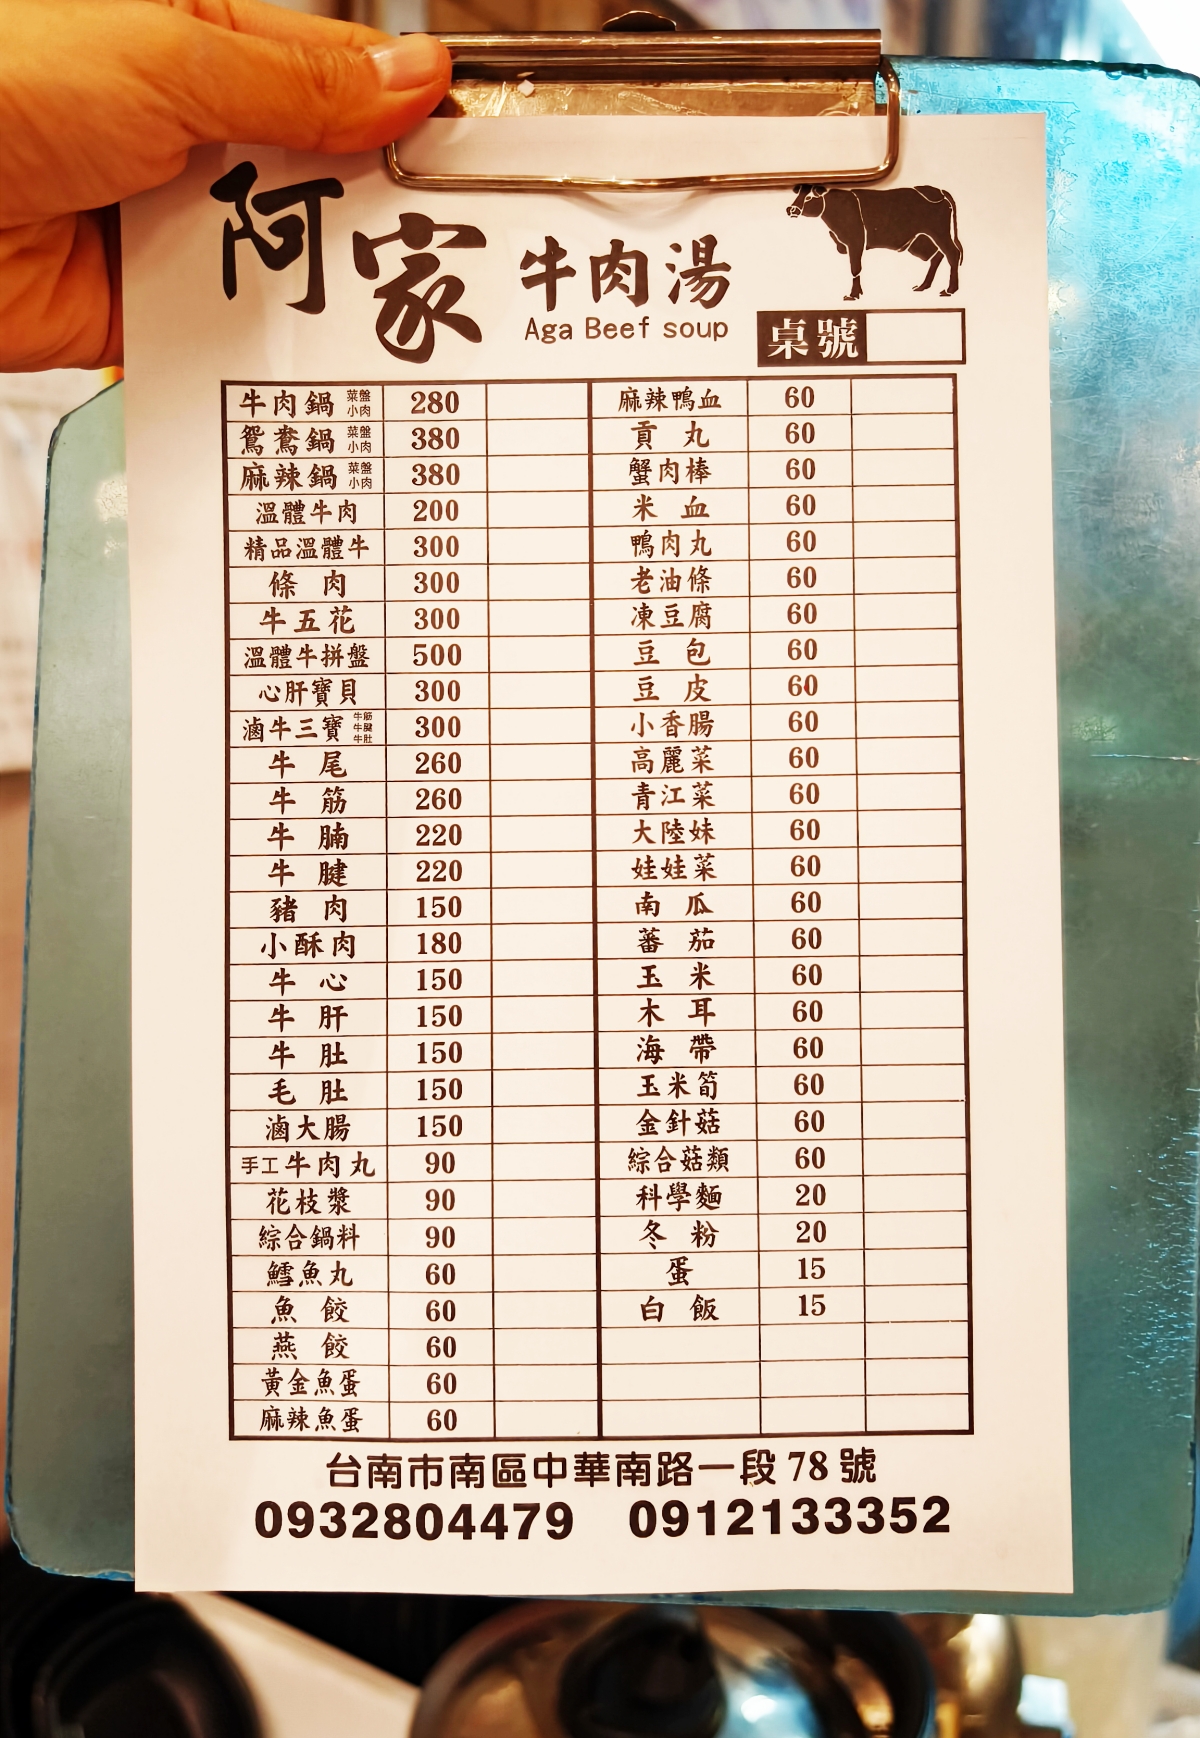 阿家 牛肉湯
Aga Beef soup
桌號
牛肉鍋 菜盤 小肉 280
鴛鴦鍋 菜盤 小肉 380
麻辣鍋 菜盤 小肉 380
溫體牛肉 200
精品溫體牛 300
條肉 300
牛五花 300
溫體牛拼盤 500
心肝寶貝 300
滷牛三寶 牛筋 牛腱 牛肚 300
牛尾 260
牛筋 260
牛腩 220
牛腱 220
豬肉 150
小酥肉 180
牛心 150
牛肝 150
牛肚 150
毛肚 150
滷大腸 150
手工牛肉丸 90
花枝漿 90
綜合鍋料 90
鱈魚丸 60
魚餃 60
燕餃 60
黃金魚蛋 60
麻辣魚蛋 60
麻辣鴨血 60
貢丸 60
蟹肉棒 60
米血 60
鴨肉丸 60
老油條 60
凍豆腐 60
豆包 60
豆皮 60
小香腸 60
高麗菜 60
青江菜 60
大陸妹 60
娃娃菜 60
南瓜 60
蕃茄 60
玉米 60
木耳 60
海帶 60
玉米筍 60
金針菇 60
綜合菇類 60
科學麵 20
冬粉 20
蛋 15
白飯 15
台南市南區中華南路一段78號
0932804479 0912133352